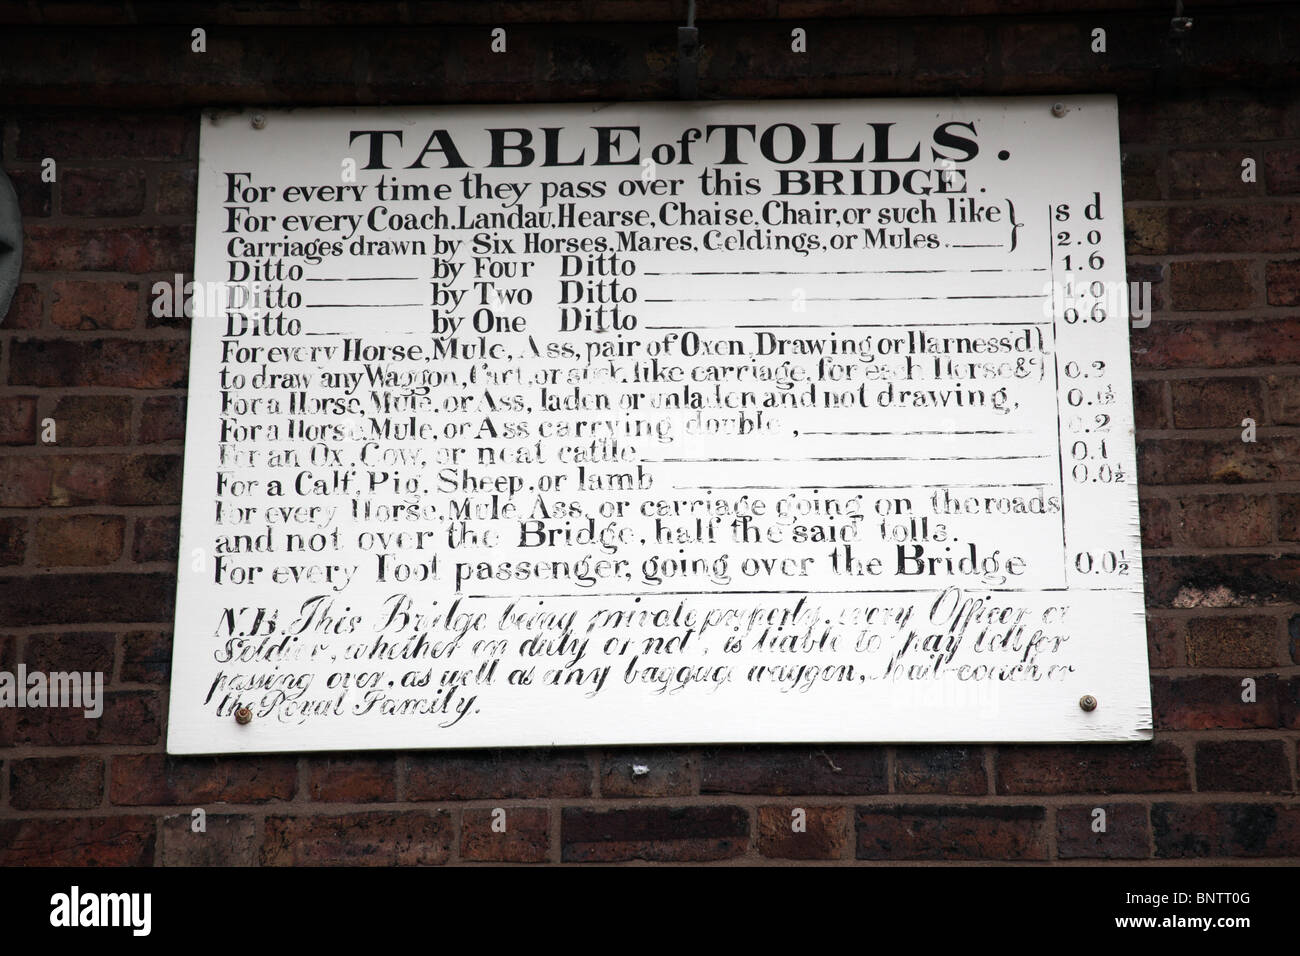 TABLE of TOLLS.
For every time they pass over this BRIDGE.
For every Coach, Landau, Hearse, Chaise, Chair, or such like } s d
Carriages drawn by Six Horses, Mares, Geldings, or Mules. 2.0
Ditto by Four Ditto 1.6
Ditto by Two Ditto 1.0
Ditto by One Ditto 0.6
For every Horse, Mule, Ass, pair of Oxen, Drawing or Harness'd }
to draw any Waggon, Cart, or such like carriage, for each Horse &c 0.2
For a Horse, Mule, or Ass, laden or unladen and not drawing, 0.1½
For a Horse, Mule, or Ass carrying double, 0.2
For an Ox, Cow, or neat cattle 0.1
For a Calf, Pig, Sheep, or lamb 0.0½
For every Horse, Mule, Ass, or carriage going on the roads
and not over the Bridge, half the said tolls.
For every Foot passenger, going over the Bridge 0.0½
N.B. This Bridge being private property, every Officer or
Soldier, whether on duty or not, is liable to pay toll for
passing over, as well as any baggage waggon, Mail-coach or
the Royal Family.
alamy
Image ID: BNTT0G
www.alamy.com